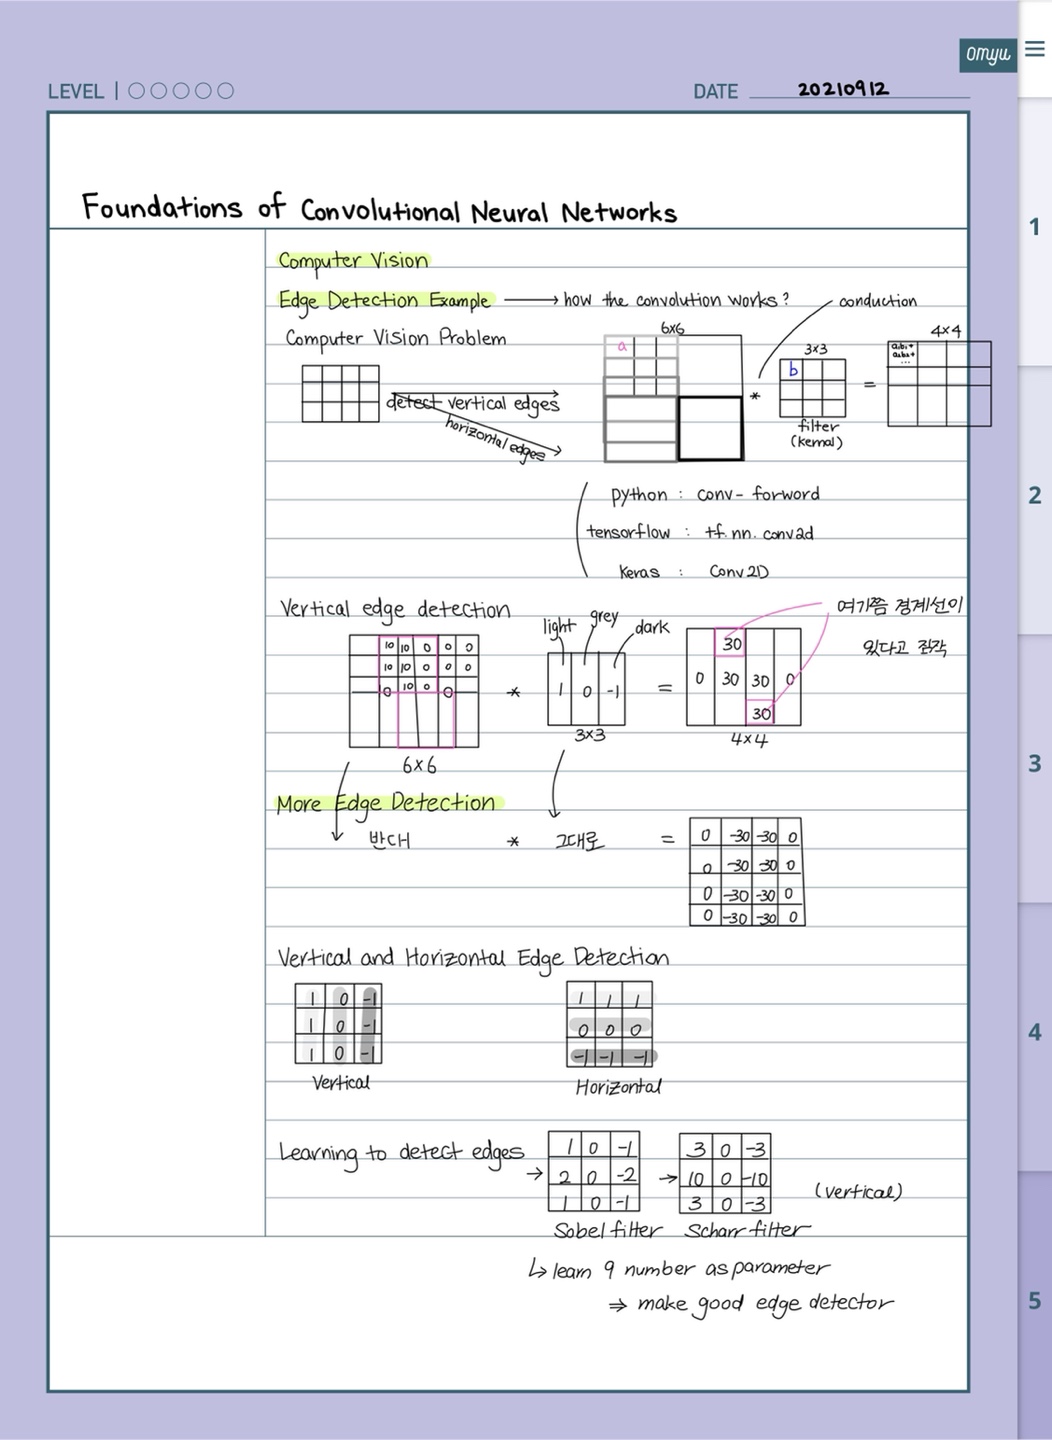 omyu
LEVEL
DATE 20210912
Foundations of Convolutional Neural Networks
Computer Vision
Edge Detection Example → how the convolution works? conduction
Computer Vision Problem
6×6
3×3
4×4
a
b
a1b1+
a2b2+
...
* =
detect vertical edges
horizontal edges
filter
(kernal)
python : conv- forword
tensorflow : tf. nn. conv2d
Keras : Conv2D
Vertical edge detection
light grey dark
여기쯤 경계선이
있다고 짐작
10 10 0 0 0
10 10 0 0 0
0 10 0 0
*
1 0 -1
=
30
0 30 30 0
30
6×6
3×3
4×4
More Edge Detection
반대 * 그대로 =
0 -30 -30 0
0 -30 -30 0
0 -30 -30 0
0 -30 -30 0
Vertical and Horizontal Edge Detection
1 0 -1
1 0 -1
1 0 -1
Vertical
1 1 1
0 0 0
-1 -1 -1
Horizontal
Learning to detect edges
→
1 0 -1
2 0 -2
1 0 -1
Sobel filter
→
3 0 -3
10 0 -10
3 0 -3
Scharr filter
(vertical)
↳ learn 9 number as parameter
⇒ make good edge detector
1
2
3
4
5